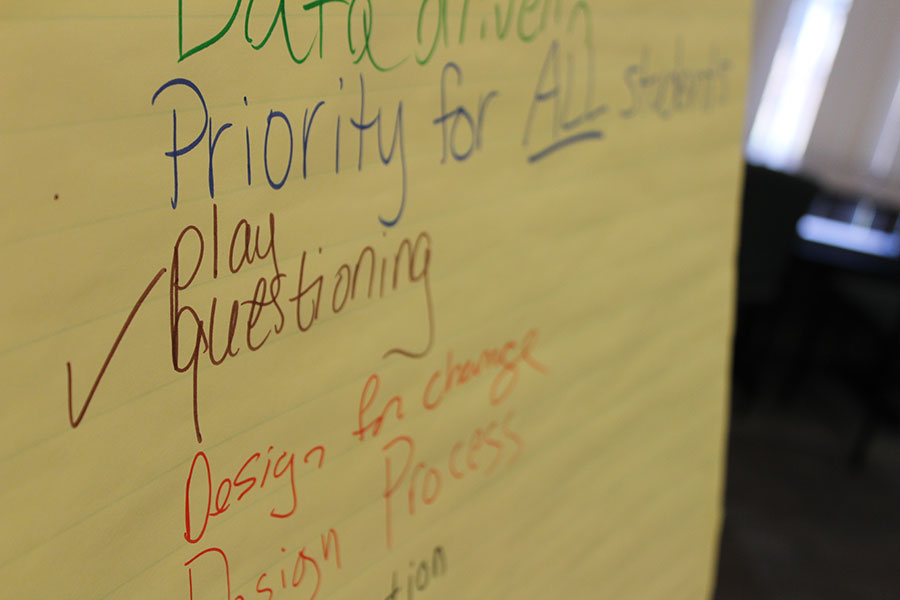 Data driven
Priority for ALL students
play
questioning
Design for change
Design Process